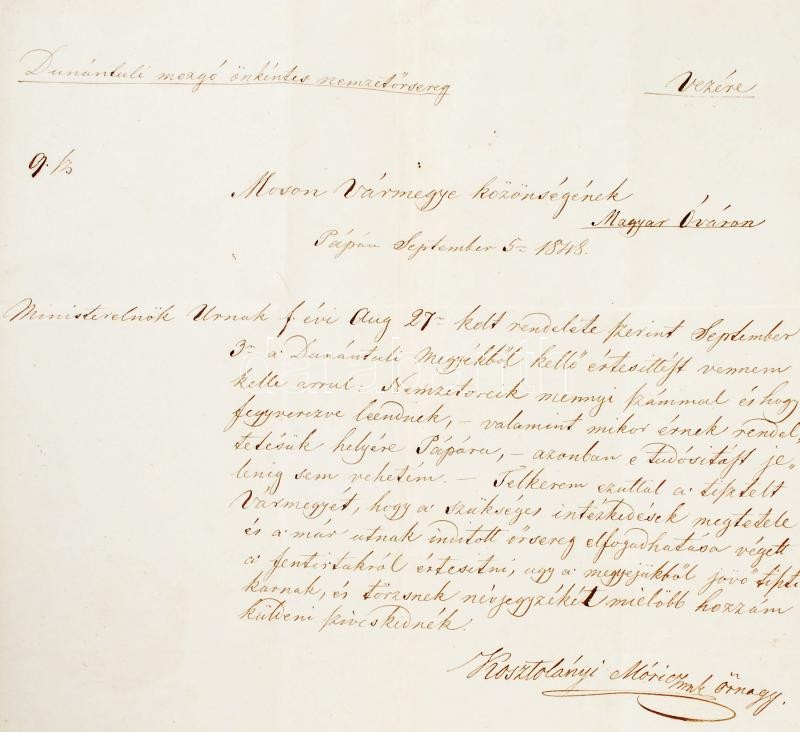 Dunántuli mozgó önkintes nemzetőrsereg Vezére
9. sz
Moson Vármegye közönségének
Magyar Óváron
Pápán September 5= 1848.
Ministerelnök Urnak f. évi Aug 27= kelt rendelete szerint September
3= a Dunántuli Megyékből kellő értesittést vennem
kelle arrul: Nemzetőreik mennyi számmal és hogy
fegyverezve leendnek, – valamint mikor érnek rendel„
tetésük helyére Pápára, – azonban e tudósitást je„
lenig sem vehetém. – Felkérem ezuttal a tisztelt
Vármegyét, hogy a szükséges intézkedések megtétele
és a már utnak inditott őrsereg elfogadhatása végett
a fentirtakról értesitni, ugy a megyéjükből jövő tiszti
karnak, és törzsnek névjegyzékét mielöbb hozzám
küldeni sziveskednék.
Kosztolányi Móricz őrnagy.